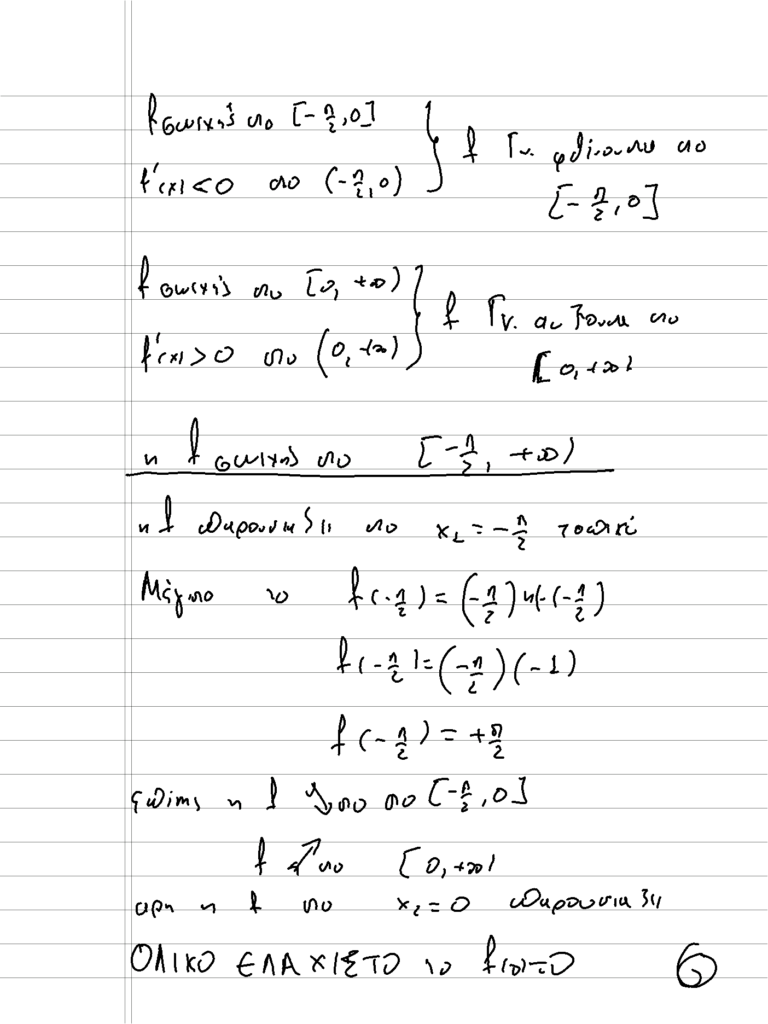 f συνεχής στο [-π/2, 0] } f γν. φθίνουσα στο
f'(x) < 0 στο (-π/2, 0) [-π/2, 0]
f συνεχής στο [0, +∞) } f γν. αύξουσα στο
f'(x) > 0 στο (0, +∞) [0, +∞)
η f συνεχής στο [-π/2, +∞)
η f παρουσιάζει στο x₁ = -π/2 τοπικό
Μέγιστο το f(-π/2) = (-π/2) ημ(-π/2)
f(-π/2) = (-π/2)(-1)
f(-π/2) = +π/2
επίσης η f ↘ στο [-π/2, 0]
f ↗ στο [0, +∞)
αρα η f στο x₂ = 0 παρουσιάζει
ΟΛΙΚΟ ΕΛΑΧΙΣΤΟ το f(0) = 0 6